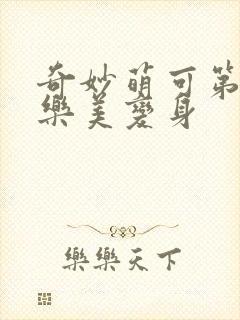 奇妙萌可第
樂美變身
樂樂天下